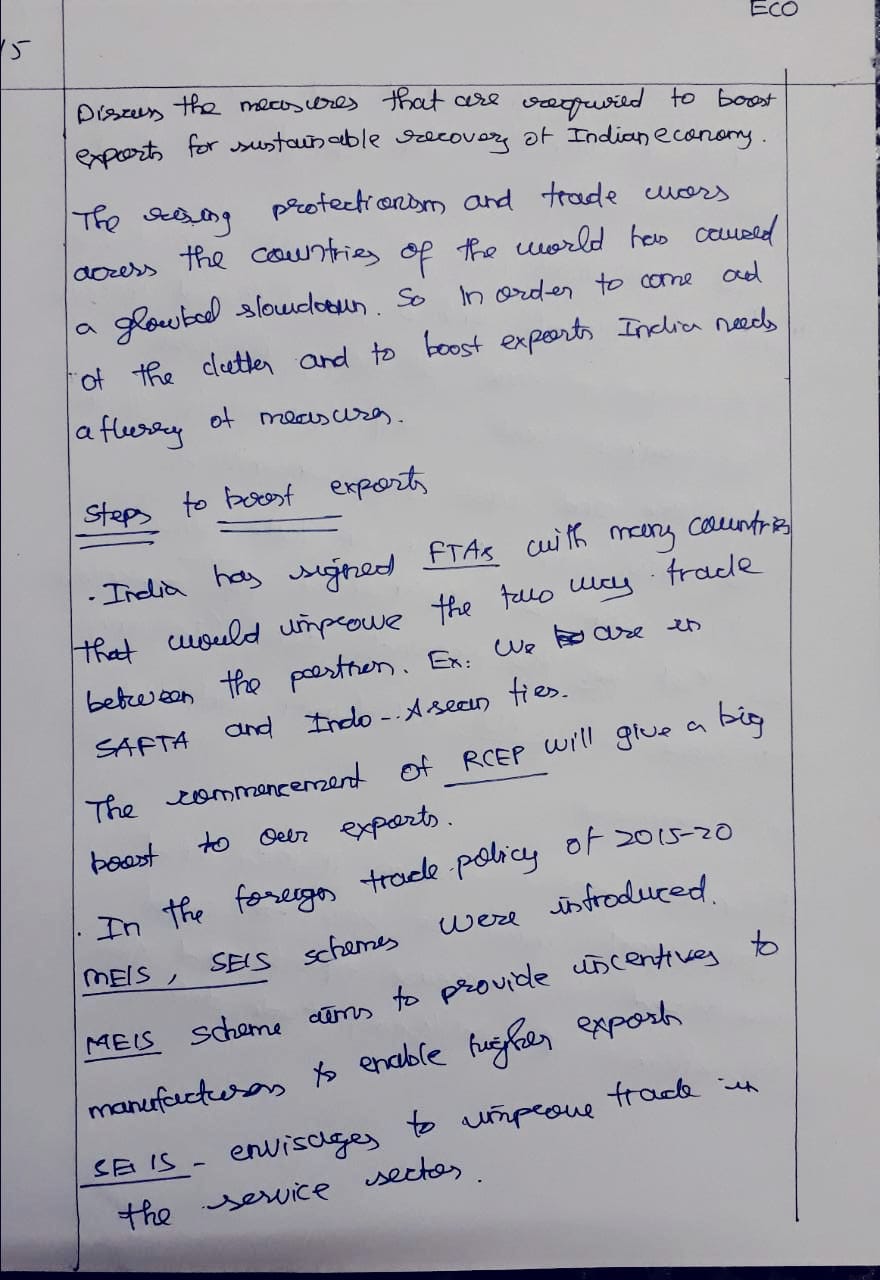 ECO
15
Discuss the measures that are required to boost
exports for sustainable recovery of Indian economy.
The rising protectionism and trade wars
across the countries of the world has caused
a glowbal slowdown. So in order to come out
of the clutter and to boost exports India needs
a flurry of measures.
Steps to boost exports
. India has signed FTAs with many countries
that would improve the two way trade
between the partners. Ex: We are in
SAFTA and Indo-Asean ties.
The commencement of RCEP will give a big
boost to our exports.
. In the foreign trade policy of 2015-20
MEIS, SEIS schemes were introduced.
MEIS scheme aims to provide incentives to
manufacturers to enable higher exports
SEIS - envisages to improve trade in
the service sector.